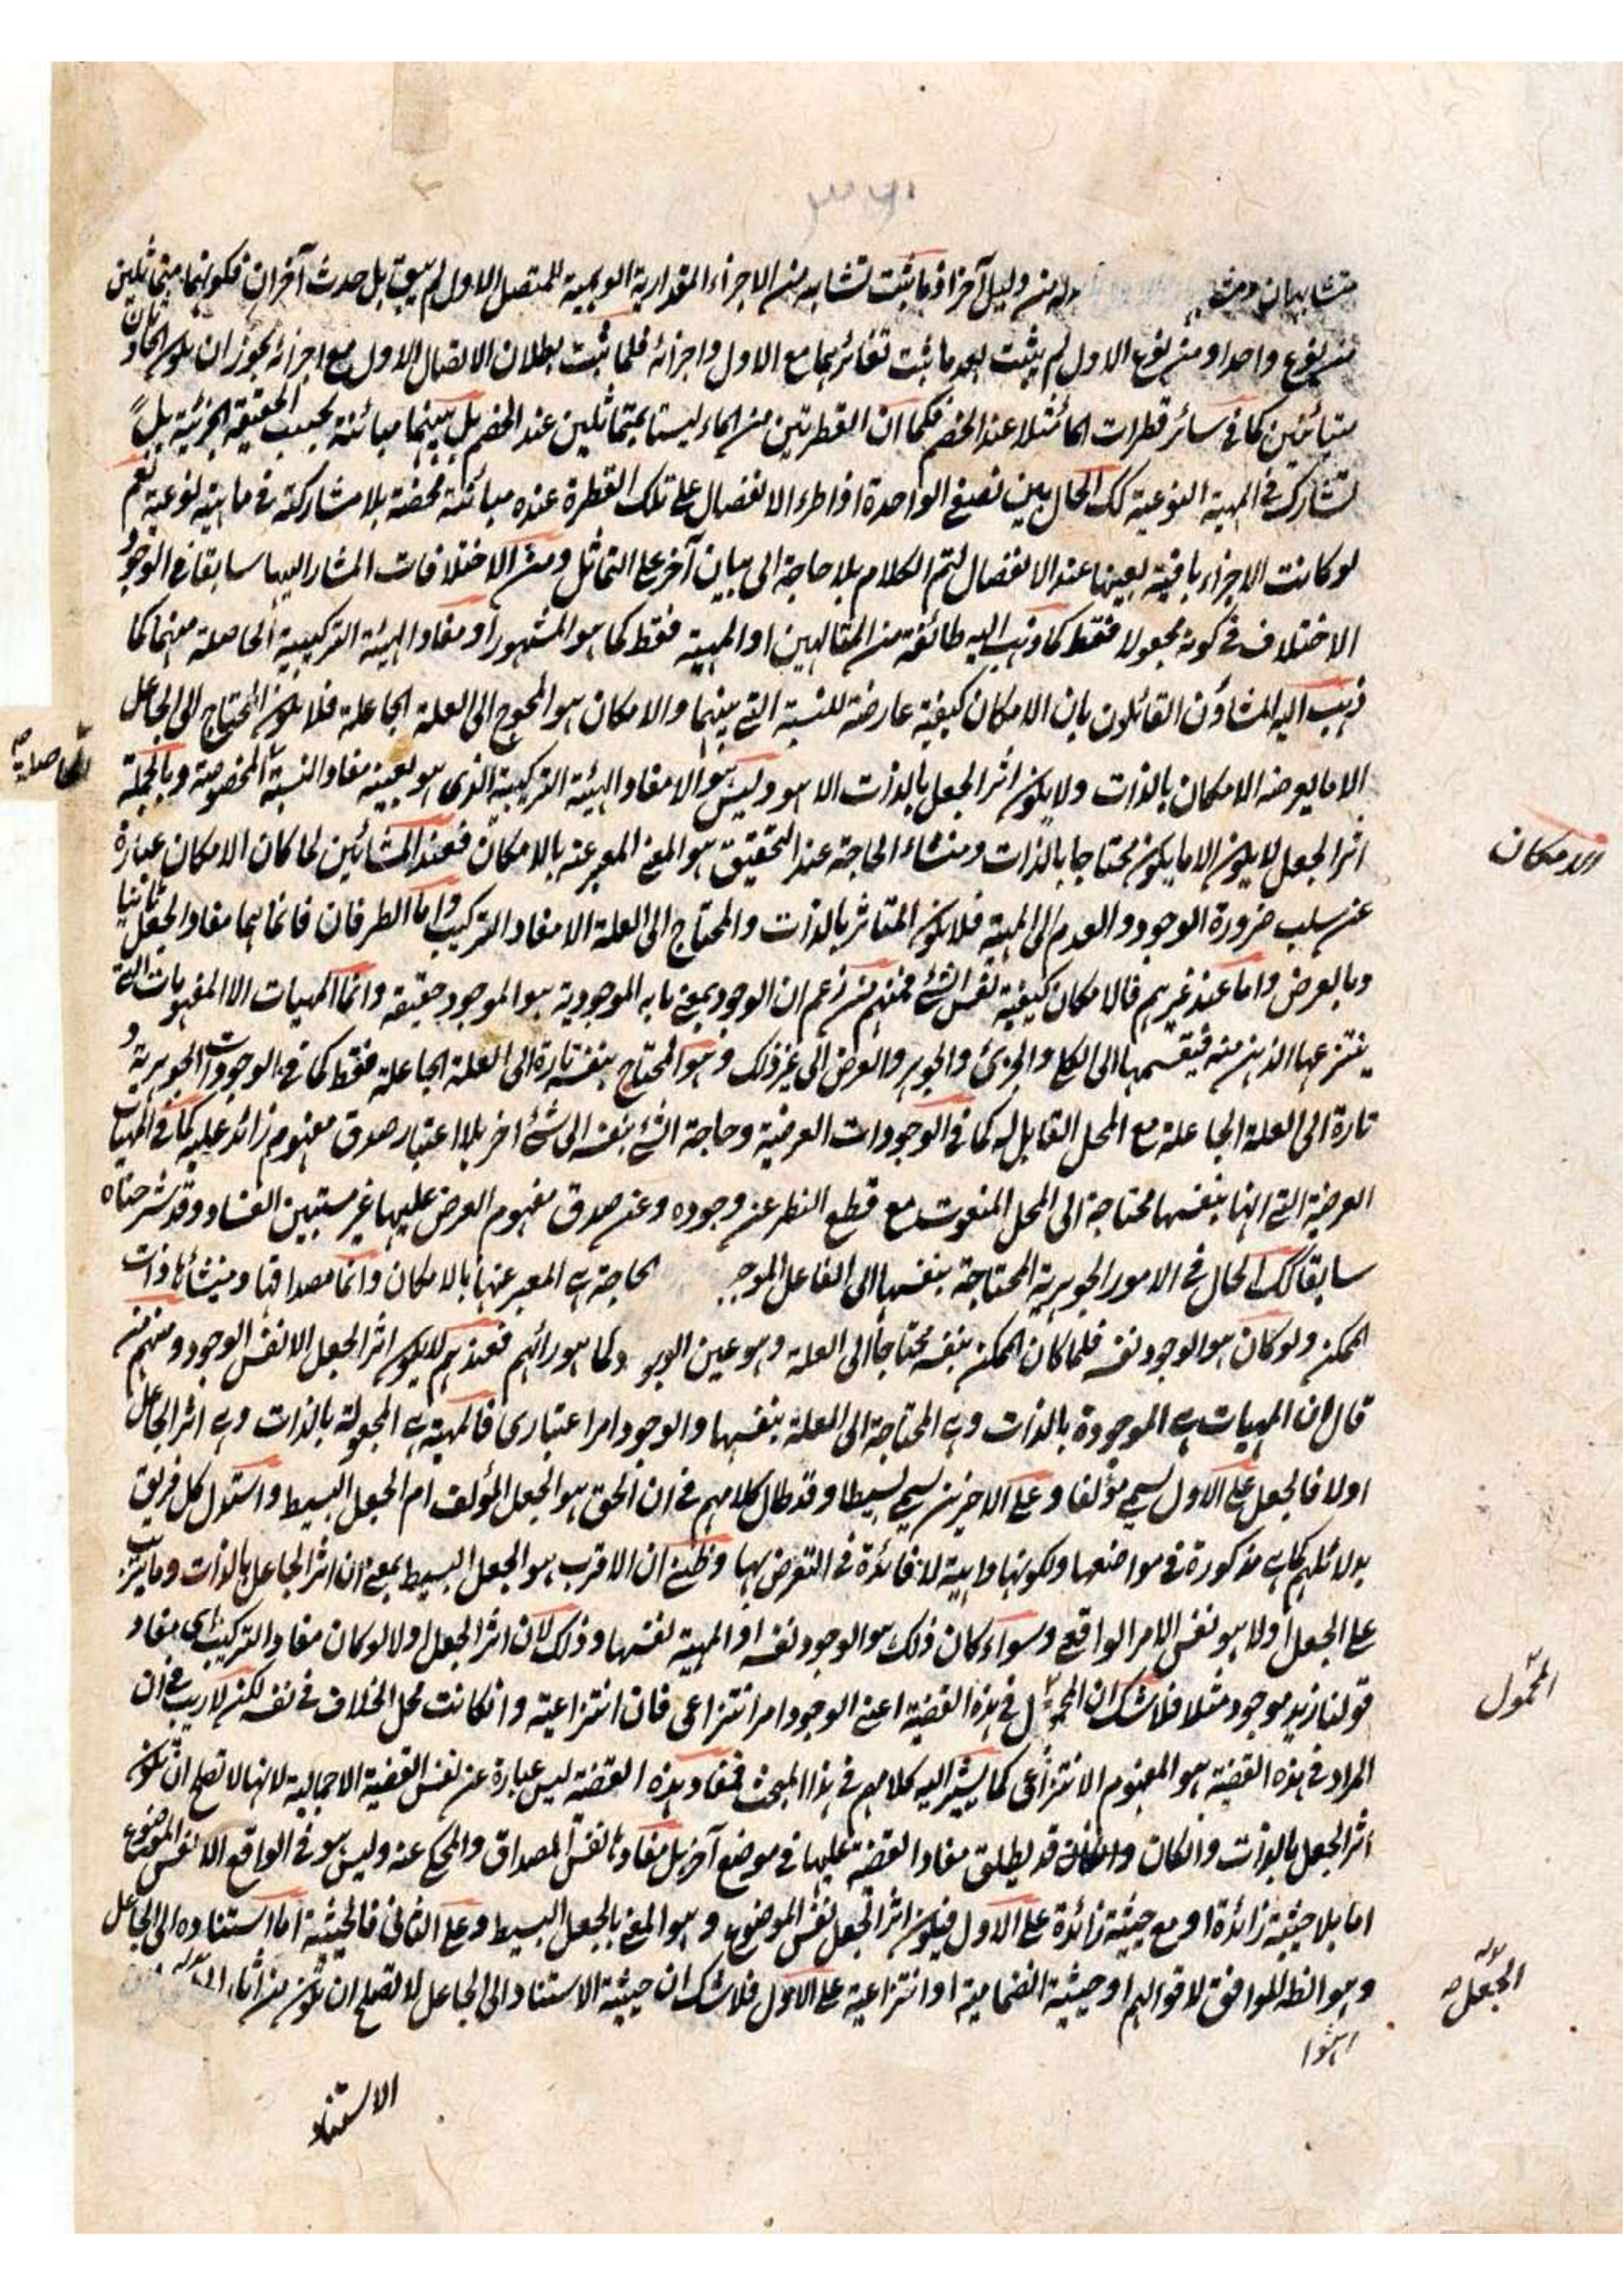 متشابهان ومن له من دليل آخر اذ ما يثبت تشابه من الاجزاء المقدارية الوهمية للمتصل الاول لم يبق بل حدث آخران فكونهما متماثلين
من نوع واحد او من نوع الاول لم يثبت بعد ما ثبت تغائرهما مع الاول واجزائه فلما ثبت بطلان الاتصال الاول مع اجزائه يجوز ان يكون الحادثان
متبائنين كما في سائر قطرات الماء مثلا عند الخصم فكما ان القطرتين من الماء ليستا بمتماثلين عند الخصم بل بينهما مبائنة بحسب الحقيقة الجزئية بلا
تشارك في المهية النوعية كك الحال بين نصفي الواحدة اذا طرء الانفصال على تلك القطرة عنده مبائنة محضة بلا مشاركة في ماهية نوعية نعم
لو كانت الاجزاء باقية بعينها عند الانفصال لتم الكلام بلا حاجة الى بيان آخر على التماثل ومن الاختلافات المشار اليها سابقا في الوجود
الاختلاف في كونه مجعولا فقط كما ذهب اليه طائفة من المتالهين او المهية فقط كما هو المشهور او مفاد الهيئة التركيبية الحاصلة منهما كما
ذهب اليه المشاؤن القائلون بان الامكان كيفية عارضة للنسبة التي بينهما والامكان هو المحوج الى العلة الجاعلة فلا يكون المحتاج الى الجاعل
الا ما يعرضه الامكان بالذات ولا يكون اثر الجعل بالذات الا هو وليس هو الا مفاد الهيئة التركيبية الذى هو بعينه مفاد النسبة المخصوصة وبالجملة
الحاصلة صح
اثر الجعل لا يكون الا ما يكون محتاجا بالذات ومنشاء الحاجة عند التحقيق هو المعنى المعبر عنه بالامكان فعند المشائين لما كان الامكان عبارة
والامكان
عن سلب ضرورة الوجود والعدم الى المهية فلا يكون المتاثر بالذات والمحتاج الى العلة الا مفاد التركيب واما الطرفان فانما هما مفاد الجعل ثانيا
وبالعرض واما عند غيرهم فالامكان كيفية نفس الشئ فمنهم من زعم ان الوجود بمعنى ما به الموجودية هو الموجود حقيقة وانما المهيات الا المفهومات التي
ينتزعها الذهن منه فيقسمها الى الكلى والجزئ والجوهر والعرض الى غير ذلك وهو المحتاج بنفسه تارة الى العلة الجاعلة فقط كما في الوجودات الجوهرية و
تارة الى العلة الجاعلة مع المحل القابل له كما في الوجودات العرضية وحاجة الشئ بنفسه الى شئ اخر بلا اعتبار صدق مفهوم زائد عليه كما في المهيات
العرضية التي انها بنفسها محتاجة الى المحل المنعوت مع قطع النظر عن وجوده وعن صدق مفهوم العرض عليها غير مستبين الفساد وقد شرحناه
سابقا كك الحال في الامور الجوهرية المحتاجة بنفسها الى الفاعل الموجد الحاجة هي المعبر عنها بالامكان وانما مصداقها ومنشأها ذات
الممكن ولو كان هو الوجود نفسه فلما كان الممكن بنفسه محتاجا الى العلة وهو عين الوجود كما هو رائهم فعندهم لا يكون اثر الجعل الا نفس الوجود ومنهم من
قال ان المهيات هي الموجودة بالذات وهي المحتاجة الى العلة بنفسها والوجود امر اعتبارى فالمهية هي المجعولة بالذات وهي اثر الجاعل
اولا فالجعل على الاول يسمى مؤلفا وعلى الاخرين يسمى بسيطا وقد طال كلامهم في ان الحق هو الجعل المؤلف ام الجعل البسيط واستدل كل فريق
بدلائلهم كما هي مذكورة في مواضعها ولكونها واهية لا فائدة في التعرض بها وظني ان الاقرب هو الجعل البسيط بمعنى ان اثر الجاعل بالذات وما يترتب
على الجعل اولا هو نفس الامر الواقعى وسواء كان ذلك هو الوجود نفسه او المهية نفسها وذلك لان اثر الجعل اولا لو كان مفاد التركيب اى مفاد
قولنا زيد موجود مثلا فلا شك ان المحمول في هذه القضية اعنى الوجود امر انتزاعى فان انتزاعية وان كانت محل الخلاف في نفسه لكن لا ريب في ان
المحمول
المراد في هذه القضية هو المفهوم الانتزاعى كما يشير اليه كلامهم في هذا المبحث فمفاد هذه القضية ليس عبارة عن نفس القضية الاجمالية لانها لا تصلح ان تكون
اثر الجعل بالذات وان كان قد يطلق مفاد القضية عليها في موضع آخر بل مفادها نفس المصداق والمحكى عنه وليس هو في الواقع الا نفس الموضوع
اما بلا حيثية زائدة او مع حيثية زائدة على الاول فيكون اثر الجعل نفس الموضوع وهو المعنى بالجعل البسيط وعلى الثانى فالحيثية اما استناده الى الجاعل
وهو الظ الموافق لاقوالهم او حيثية انضمامية او انتزاعية على الاول فلا شك ان حيثية الاستناد الى الجاعل لا تصلح ان تكون من آثار
الجعل صح
الاستناد